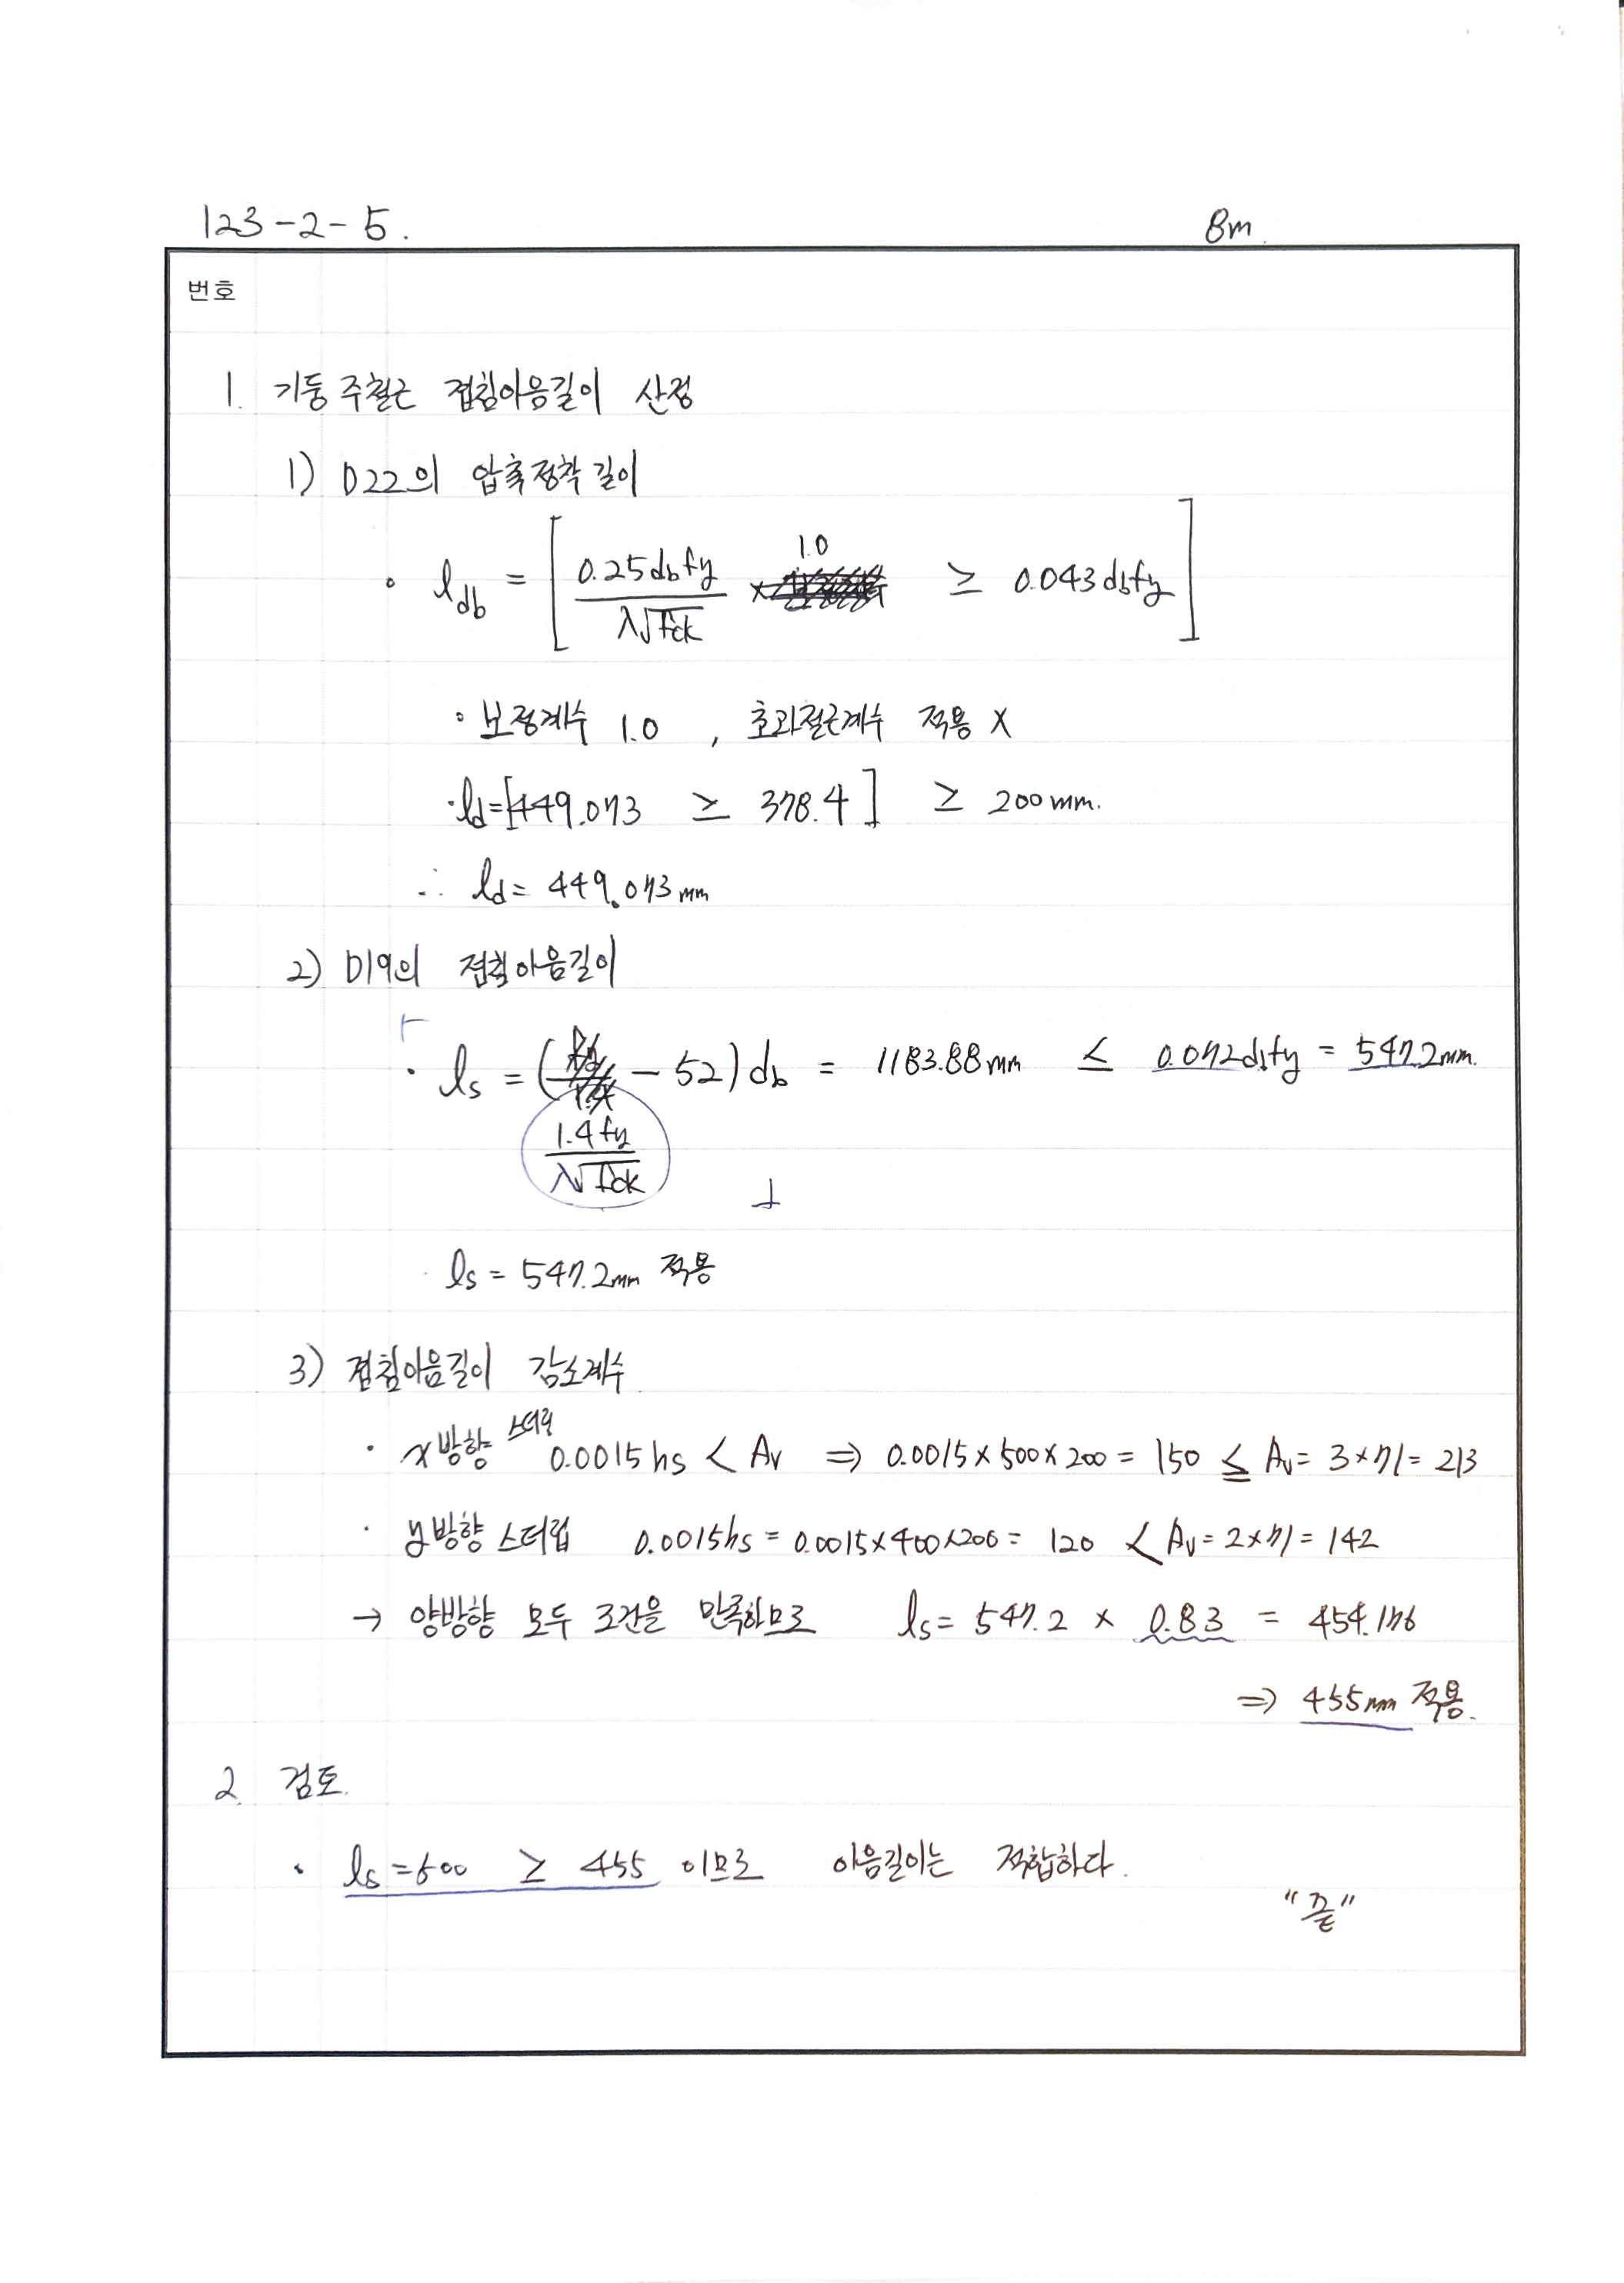 123-2-5.
8m.
번호
1. 기둥 주철근 겹침이음길이 산정
1) D22의 압축정착길이
· ldb = [ 0.25dbfy / λ√fck × 1.0 ≥ 0.043dbfy ]
· 보정계수 1.0 , 초과철근계수 적용 X
· ld=[449.073 ≥ 378.4] ≥ 200mm.
∴ ld= 449.073mm
2) D19의 겹침이음길이
· ls = ( - 52)db = 1183.88mm ≤ 0.072dbfy = 547.2mm.
1.4fy / λ√fck
ls = 547.2mm 적용
3) 겹침이음길이 감소계수
· x방향 스터럽 0.0015hs < Av ⇒ 0.0015×500×200 = 150 ≤ Av= 3×71= 213
· y방향 스터럽 0.0015hs = 0.0015×400×200 = 120 < Av= 2×71= 142
→ 양방향 모두 조건을 만족하므로 ls= 547.2 × 0.83 = 454.176
⇒ 455mm 적용.
2. 검토.
· ls =500 ≥ 455 이므로 이음길이는 적합하다.
"끝"